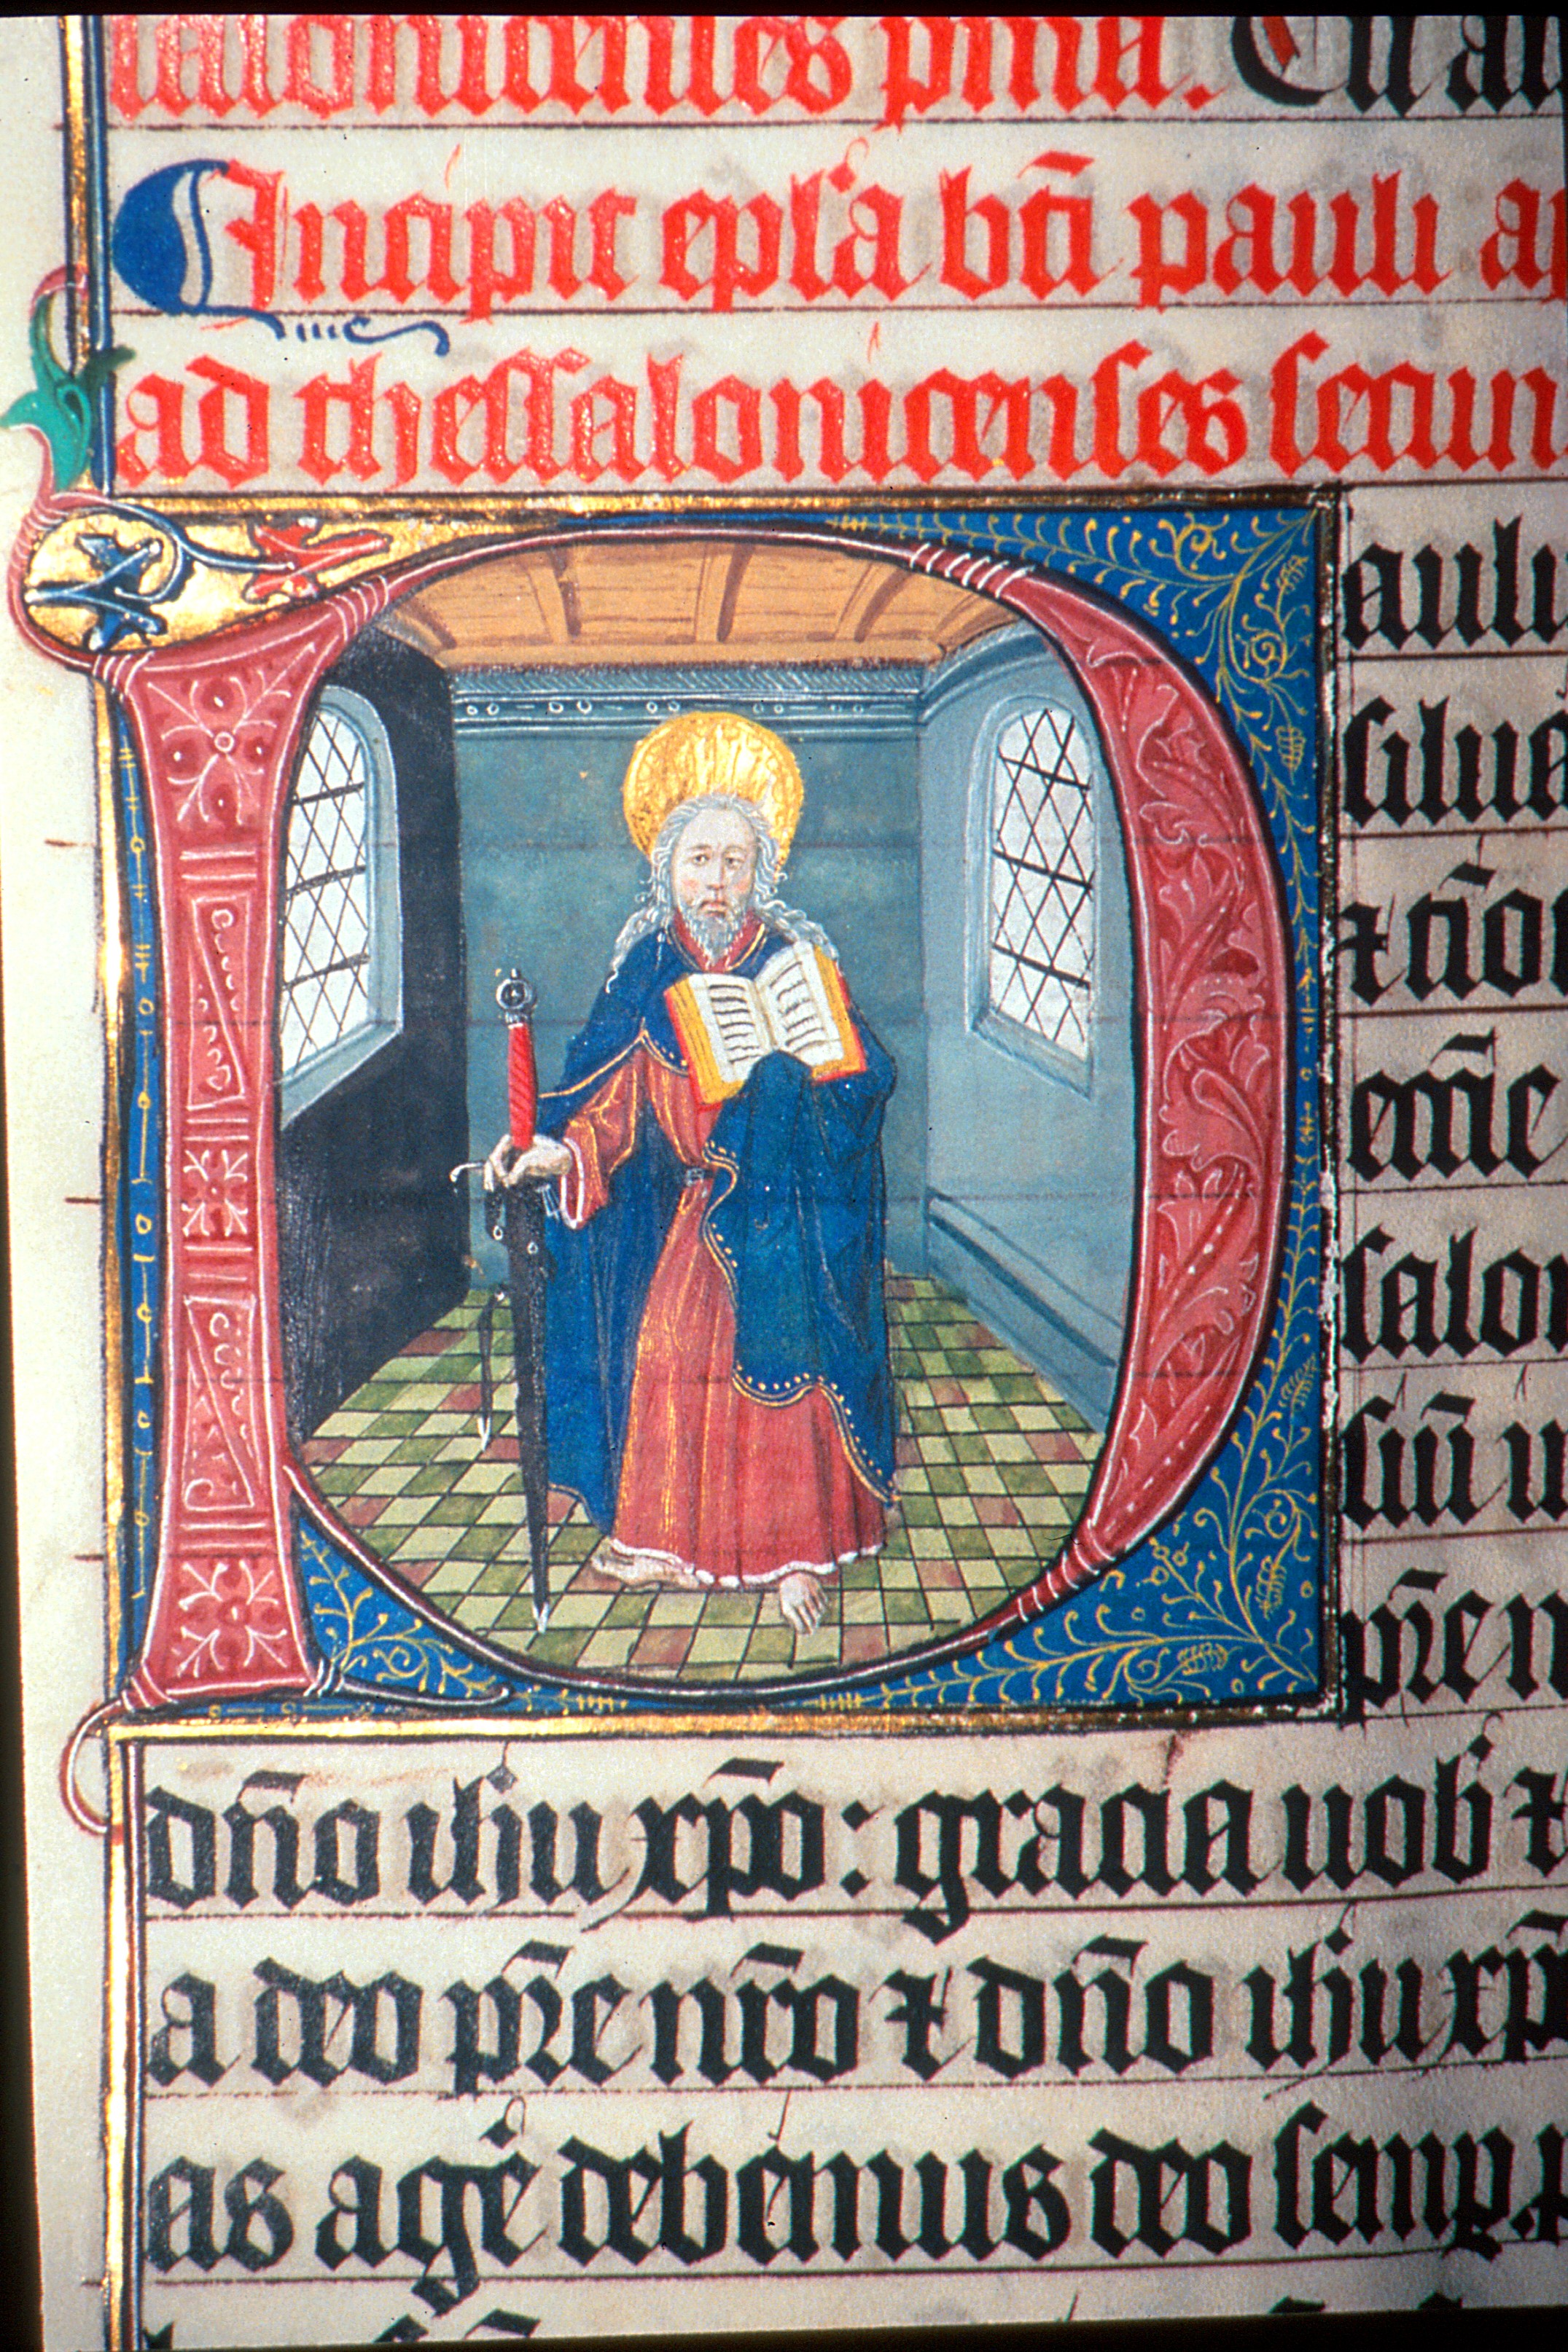 salonicenses prima. Cu
Incipit epl'a bti pauli ap
ad thessalonicenses secun
Pauli
silua
⁊ tīo
eccl'ie
salon
siu u
pr̄e n
dn̄o ihu xp̄o: gracia uob' ⁊
a deo pr̄e nr̄o ⁊ dn̄o ihu xp̄
as age' debemus deo semp.